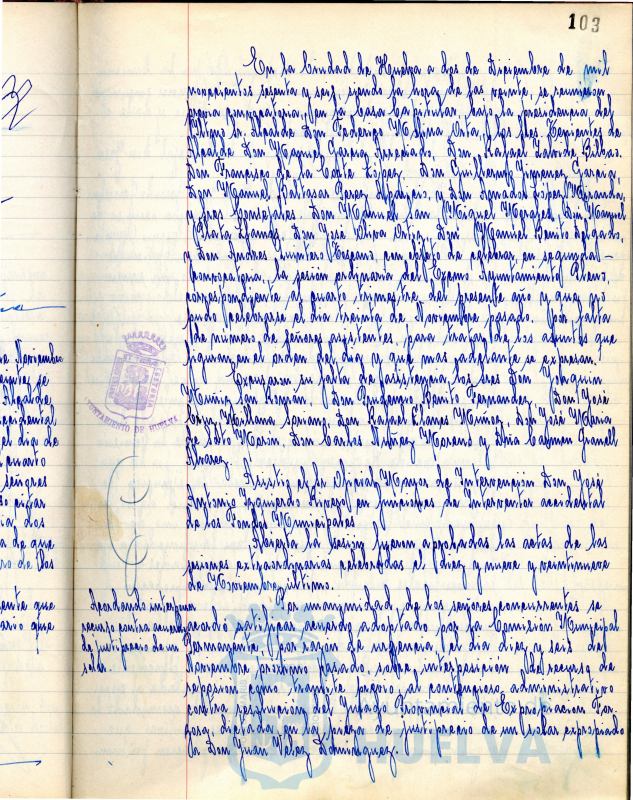 103
En la Ciudad de Huelva a dos de Diciembre de mil
novecientos sesenta y seis, siendo la hora de las veinte, se reunieron
previa convocatoria, en la Casa Capitular, bajo la presidencia del
Iltmo. Sr. Alcalde Don Federico Molina Orta, los Sres. Tenientes de
Alcalde Don Manuel García
Don Francisco de la Corte López, Don Guillermo Jimenez García,
Don Manuel Baltasar Perez y Don Amador López Miranda,
y Sres. Consejales Don Manuel San Miguel Don Manuel
Don José Oliva Don Manuel Benito Delgado,
y Don Andres Quintero con objeto de celebrar en segunda
convocatoria, la sesión ordinaria del Excmo. Ayuntamiento Pleno,
correspondiente al cuarto trimestre del presente año y que no
pudo celebrarse el dia treinta de Noviembre pasado, por falta
de número de señores asistentes, para tratar de los asuntos que
figuran en el orden del dia y que mas adelante se expresan.
Excusaron su falta de asistencia, los Sres. Don Joaquin
Muñiz San Román, Don Benito Fernandez, Don José
Orellana Don Rafael Llanes Muñoz, Don José Maria
Marín, Don Carlos Moreno y Doña Carmen
Alvarez.
Asistió el Sr. Oficial Mayor de Intervención Don José
Antonio Izquierdo en funciones de Interventor accidental
de los Fondos Municipales.
Abierta la sesión fueron aprobadas las actas de las
sesiones extraordinarias celebradas el diez y nueve y veintinueve
de Noviembre último.
Acordando interponer
recurso contra acuerdo
de justiprecio de un
solar.
Por unanimidad de los señores concurrentes se
acordó ratificar acuerdo adoptado por la Comisión Municipal
Permanente, por razon de urgencia, el dia diez y seis de
Noviembre próximo pasado, sobre interposición de recurso de
reposición como tramite previo al contencioso administrativo
contra resolución del Jurado Provincial de Expropiacion For-
zosa, dictada en la pieza de justiprecio de un solar expropiado
a Don Juan Velez Dominguez.
AYUNTAMIENTO DE HUELVA
HUELVA